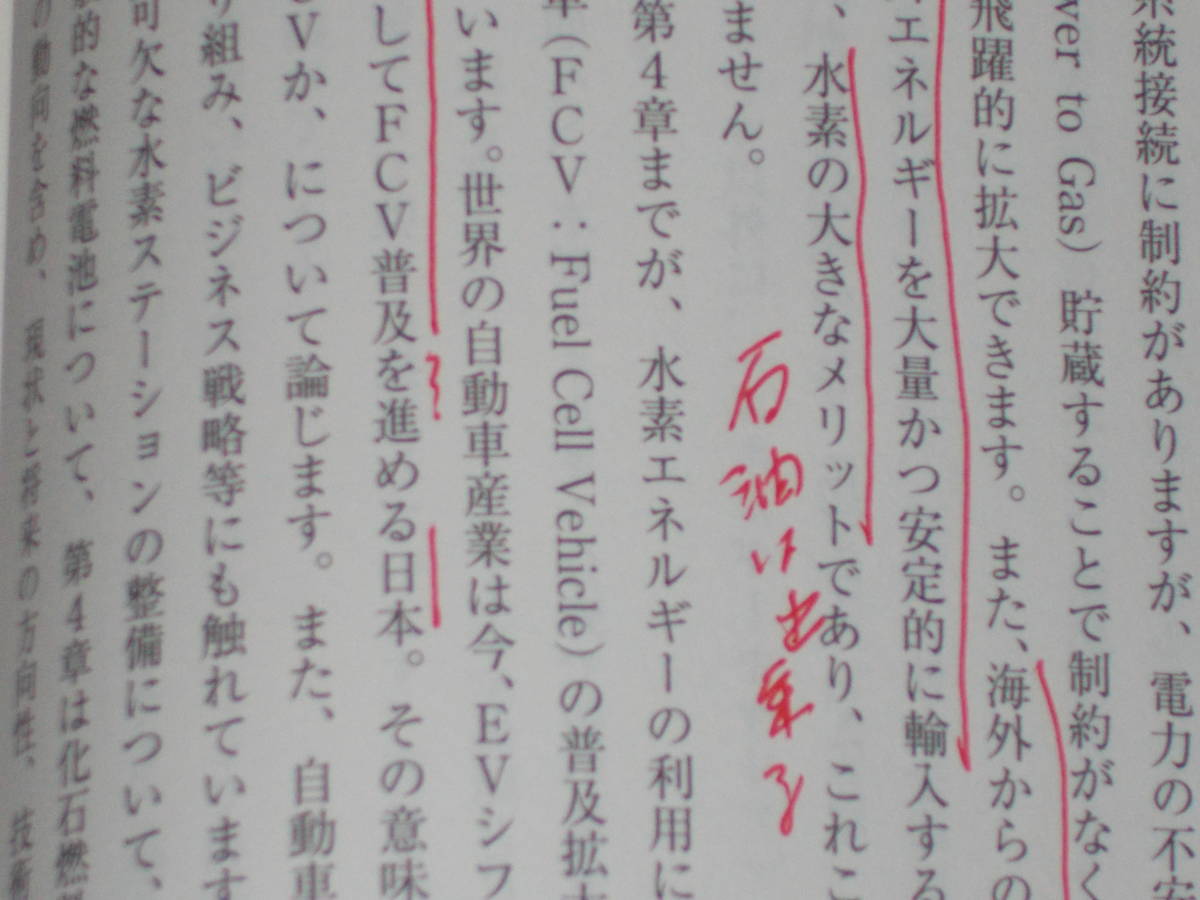 系統接続に制約がありますが、電力の不安
ver to Gas）貯蔵することで制約がなく
飛躍的に拡大できます。また、海外からの
エネルギーを大量かつ安定的に輸入する
、水素の大きなメリットであり、これこ
ません。
石油は出来る
第4章までが、水素エネルギーの利用に
車（FCV：Fuel Cell Vehicle）の普及拡大
います。世界の自動車産業は今、EVシフ
してFCV普及を進める日本。その意味
?
Vか、について論じます。また、自動車
り組み、ビジネス戦略等にも触れています
可欠な水素ステーションの整備について、
的な燃料電池について、第4章は化石燃
の動向を含め、現状と将来の方向性、技術